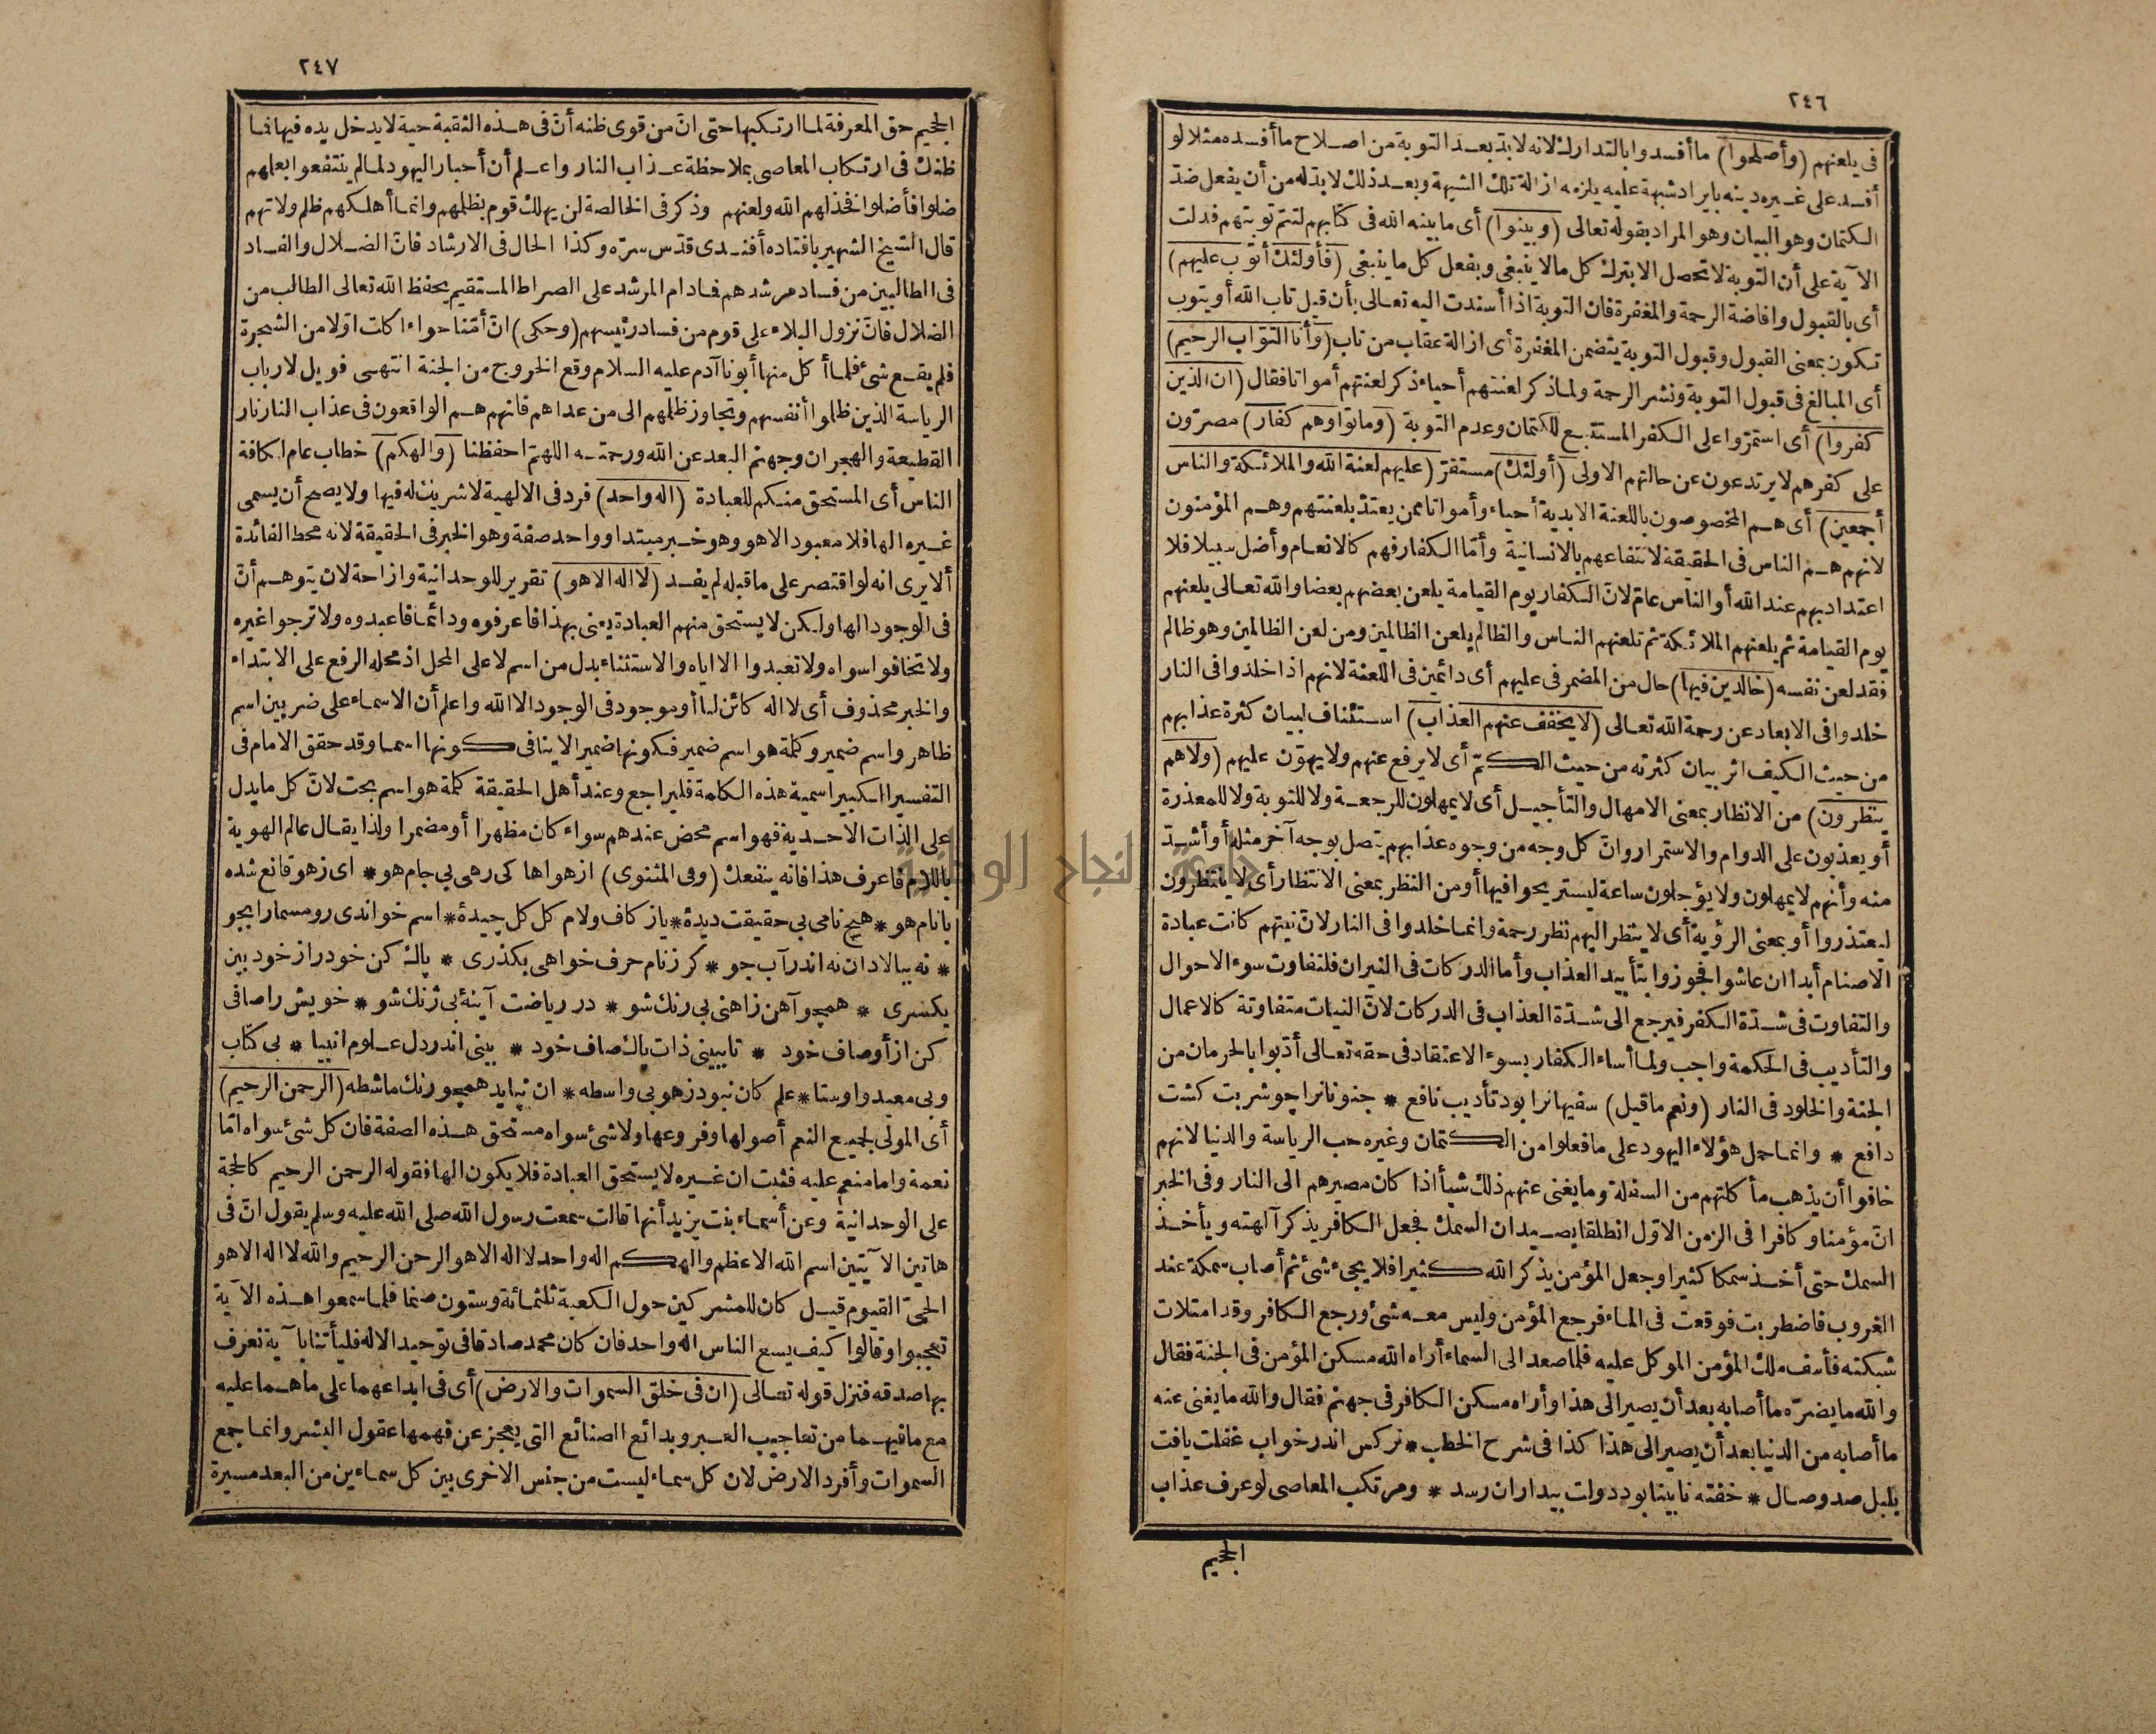 ٢٤٦
فى يلعنهم (وأصلحوا) ما أفسدوا بالتدارك لانه لا بد بعد التوبة من اصلاح ما أفسده مثلا لو
أفسد على غيره دينه بايراد شبهة عليه يلزمه ازالة تلك الشبهة وبعد ذلك لا بدله من أن يفعل ضدّ
الكتمان وهو البيان وهو المراد بقوله تعالى (وبينوا) أى ما بينه الله فى كتابهم لتتم توبتهم فدلت
الآية على أن التوبة لا تحصل الا بترك كل ما لا ينبغى وبفعل كل ما ينبغى (فأولئك أتوب عليهم)
أى بالقبول وافاضة الرحمة والمغفرة فان التوبة اذا أسندت اليه تعالى بأن قيل تاب الله أو يتوب
تكون بمعنى القبول وقبول التوبة يتضمن المغفرة أى ازالة عقاب من تاب (وأنا التوّاب الرحيم)
أى المبالغ فى قبول التوبة ونشر الرحمة ولما ذكر لعنتهم أحياء ذكر لعنتهم أمواتا فقال (ان الذين
كفروا) أى استمرّوا على الكفر المستتبع للكتمان وعدم التوبة (وماتوا وهم كفار) مصرّون
على كفرهم لا يرتدعون عن حالتهم الاولى (أولئك) مستقرّ (عليهم لعنة الله والملائكة والناس
أجمعين) أى هم المخصوصون باللعنة الابدية أحياء وأمواتا ممن يعتدّ بلعنتهم وهم المؤمنون
لانهم هم الناس فى الحقيقة لانتفاعهم بالانسانية وأمّا الكفار فهم كالانعام وأضل سبيلا فلا
اعتداد بهم عند الله أو الناس عامّ لانّ الكفار يوم القيامة يلعن بعضهم بعضا والله تعالى يلعنهم
يوم القيامة ثم يلعنهم الملائكة ثم تلعنهم الناس والظالم يلعن الظالمين ومن لعن الظالمين وهو ظالم
فقد لعن نفسه (خالدين فيها) حال من المضمر فى عليهم أى دائمين فى اللعنة لانهم اذا خلدوا فى النار
خلدوا فى الابعاد عن رحمة الله تعالى (لا يخفف عنهم العذاب) استئناف لبيان كثرة عذابهم
من حيث الكيف اثر بيان كثرته من حيث الكمّ أى لا يرفع عنهم ولا يهوّن عليهم (ولا هم
ينظرون) من الانظار بمعنى الامهال والتأجيل أى لا يمهلون للرجعة ولا للتوبة ولا للمعذرة
أو يعذبون على الدوام والاستمرار وانّ كل وجه من وجوه عذابهم يتصل بوجه آخر مثله أو أشدّ
منه وأنهم لا يمهلون ولا يؤجلون ساعة ليستريحوا فيها أو من النظر بمعنى الانتظار أى لا ينتظرون
ليعتذروا أو بمعنى الرؤية أى لا ينظر اليهم نظر رحمة وانما خلدوا فى النار لانّ نيتهم كانت عبادة
الاصنام أبدا ان عاشوا فجوزوا بتأبيد العذاب وأما الدركات فى النيران فلتفاوت سوء الاحوال
والتفاوت فى شدّة الكفر فيرجع الى شدّة العذاب فى الدركات لانّ النيات متفاوتة كالاعمال
والتأديب فى الحكمة واجب ولما أساء الكفار بسوء الاعتقاد فى حقه تعالى أدّبوا بالحرمان من
الجنة والخلود فى النار (ونعم ماقيل) سفيهانرا بود تأديب نافع * جنونانرا چو شربت كشت
دافع * وانما حمل هؤلاء اليهود على ما فعلوا من الكتمان وغيره حب الرياسة والدنيا لانهم
خافوا أن يذهب مأكلتهم من السفلة وما يغنى عنهم ذلك شيأ اذا كان مصيرهم الى النار وفى الخبر
انّ مؤمنا وكافرا فى الزمن الاوّل انطلقا يصيدان السمك فجعل الكافر يذكر آلهته ويأخذ
السمك حتى أخذ سمكا كثيرا وجعل المؤمن يذكر الله كثيرا فلا يجىء شئ ثم أصاب سمكة عند
الغروب فاضطربت فوقعت فى الماء فرجع المؤمن وليس معه شئ ورجع الكافر وقد امتلات
شبكته فأسف ملك المؤمن الموكل عليه فلما صعد الى السماء أراه الله مسكن المؤمن فى الجنة فقال
والله ما يضرّه ما أصابه بعد أن يصير الى هذا وأراه مسكن الكافر فى جهنم فقال والله ما يغنى عنه
ما أصابه من الدنيا بعد أن يصير الى هذا كذا فى شرح الخطب * نركس اندر خواب غفلت يافت
بلبل صد وصال * خفته نابينا بود دولت بيداران رسد * ومرتكب المعاصى لو عرف عذاب
الجحيم
٢٤٧
الجحيم حق المعرفة لما ارتكبها حتى انّ من قوى ظنه أنّ فى هذه الثقبة حية لا يدخل يده فيها فما
ظنك فى ارتكاب المعاصى بملاحظة عذاب النار واعلم أن أحبار اليهود لما لم ينتفعوا بعلمهم
ضلوا فأضلوا فخذلهم الله ولعنهم وذكر فى الخالصة لن يهلك قوم بظلمهم وانما أهلكهم ظلم ولاتهم
قال الشيخ الشهير بافتاده أفندى قدّس سرّه وكذا الحال فى الارشاد فانّ الضلال والفساد
فى الطالبين من فساد مرشدهم فمادام المرشد على الصراط المستقيم يحفظ الله تعالى الطالب من
الضلال فانّ نزول البلاء على قوم من فساد رئيسهم (وحكى) انّ أمّنا حواء أكلت اوّلا من الشجرة
فلم يقع شئ فلما أكل منها أبونا آدم عليه السلام وقع الخروج من الجنة انتهى فويل لارباب
الرياسة الذين ظلموا أنفسهم وتجاوز ظلمهم الى من عداهم فانهم هم الواقعون فى عذاب النار نار
القطيعة والهجران وجهنم البعد عن الله ورحمته اللهمّ احفظنا (والهكم) خطاب عام لكافة
الناس أى المستحق منكم للعبادة (اله واحد) فرد فى الالهية لا شريك له فيها ولا يصح أن يسمى
غيره الها فلا معبود الا هو وهو خبر مبتدا وواحد صفة وهو الخبر فى الحقيقة لانه محط الفائدة
ألا يرى انه لو اقتصر على ما قبله لم يفد (لا اله الا هو) تقرير للوحدانية وازاحة لان يتوهم أنّ
فى الوجود الها ولكن لا يستحق منهم العبادة يعنى بهذا فاعرفوه ودائما فاعبدوه ولا ترجوا غيره
ولا تخافوا سواه ولا تعبدوا الا اياه والاستثناء بدل من اسم لا على المحل اذ محله الرفع على الابتداء
والخبر محذوف أى لا اله كائن لنا أو موجود فى الوجود الا الله واعلم أن الاسماء على ضربين اسم
ظاهر واسم ضمير وكلمة هو اسم ضمير فكونها ضميرا لا ينافى كونها اسما وقد حقق الامام فى
التفسير الكبير اسمية هذه الكلمة فليراجع وعند أهل الحقيقة كلمة هو اسم بحت لانّ كل ما يدل
على الذات الاحدية فهو اسم محض عندهم سواء كان مظهرا أو مضمرا ولذا يقال عالم الهوية
باللام فاعرف هذا فانه ينفعك (وفى المثنوى) از هواها كى رهى بى جام هو * اى زهو قانع شده
با نام هو * هيچ نامى بى حقيقت ديدهٔ * ياز كاف ولام كل كل چيدهٔ * اسم خواندى رو مسمارا بجو
* مه ببالا دان نه اندر آب جو * كر زنام حرف خواهى بكذرى * پاك كن خود را ز خود بين
يكسرى * همچو آهن زاهنى بى رنك شو * در رياضت آينهٔ بى ژنك شو * خويش را صافى
كن از أوصاف خود * تا ببينى ذات پاك صاف خود * بينى اندر دل علوم انبيا * بى كتاب
وبى معيد واوستا * علم كان نبود زهو بى واسطه * ان نپايد همچو رنك ماشطه (الرحمن الرحيم)
أى المولى لجميع النعم أصولها وفروعها ولا شئ سواه مستحق هذه الصفة فان كل شئ سواه امّا
نعمة واما منعم عليه فثبت ان غيره لا يستحق العبادة فلا يكون الها فقوله الرحمن الرحيم كالحجة
على الوحدانية وعن أسماء بنت يزيد أنها قالت سمعت رسول الله صلى الله عليه وسلم يقول انّ فى
هاتين الآيتين اسم الله الاعظم والهكم اله واحد لا اله الا هو الرحمن الرحيم والله لا اله الا هو
الحىّ القيوم قيل كان للمشركين حول الكعبة ثلثمائة وستون صنما فلما سمعوا هذه الآية
تعجبوا وقالوا كيف يسع الناس اله واحد فان كان محمد صادقا فى توحيد الاله فليأتنا بآية نعرف
بها صدقه فنزل قوله تعالى (ان فى خلق السموات والارض) أى فى ابداعهما على ما هما عليه
مع ما فيهما من تعاجيب العبر وبدائع الصنائع التى يعجز عن فهمها عقول البشر وانما جمع
السموات وأفرد الارض لان كل سماء ليست من جنس الاخرى بين كل سماءين من البعد مسيرة